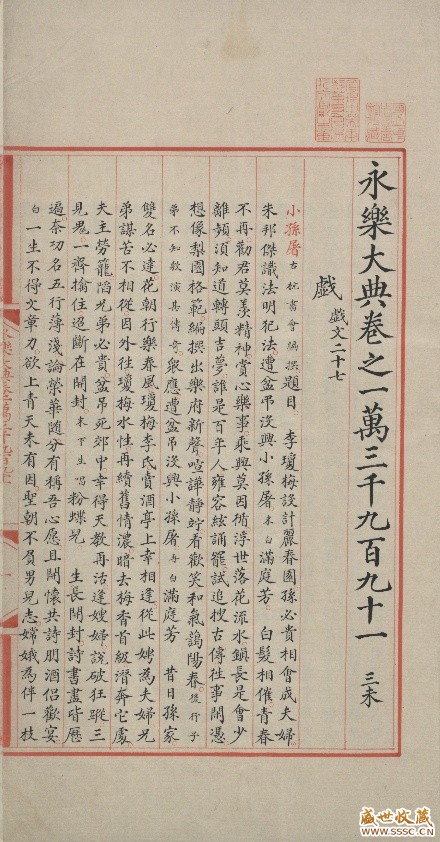 永樂大典卷之一萬三千九百九十一 三未
戲 戲文二十七
小孫屠 古杭書會編撰 題目 李瓊梅設計麗春園 孫必貴相會成夫婦
朱邦傑識法明犯法 遭盆吊沒興小孫屠 末白 滿庭芳 白髮相催青春
不再勸君莫羨精神賞心樂事乘興莫因循浮世落花流水鎮長是會少
離頻須知道轉頭吉夢誰是百年人雍容絃誦罷試追搜古傳往事閒憑
想像梨園格範編撰出樂府新聲喧譁靜竚看歡笑和氣藹陽春 後行子
弟不知敷演甚傳奇 衆應 遭盆吊沒興小孫屠 再白 滿庭芳 昔日孫家
雙名必達花朝行樂春風瓊梅李氏賣酒亭上幸相逢從此娉為夫婦兄
弟謀苦不相從因外往瓊梅水性再續舊情濃暗去梅香首級潛奔它處
夫主勞籠陷兄弟必貴盆吊死郊中幸得天教再活逢嫂婦說破狂蹤三
見鬼一齊擒住迢斷在開封 末下 生唱 粉蝶兒 生長開封詩書盡皆歷
遍奈功名五行薄淺論榮華隨分有稱吾心愿且開懷共詩朋酒侶歡宴
白 一生不得文章力欲上青天未有因聖朝不負男兒志嫦娥為伴一枝
盛世收藏
WWW.SSSC.CN